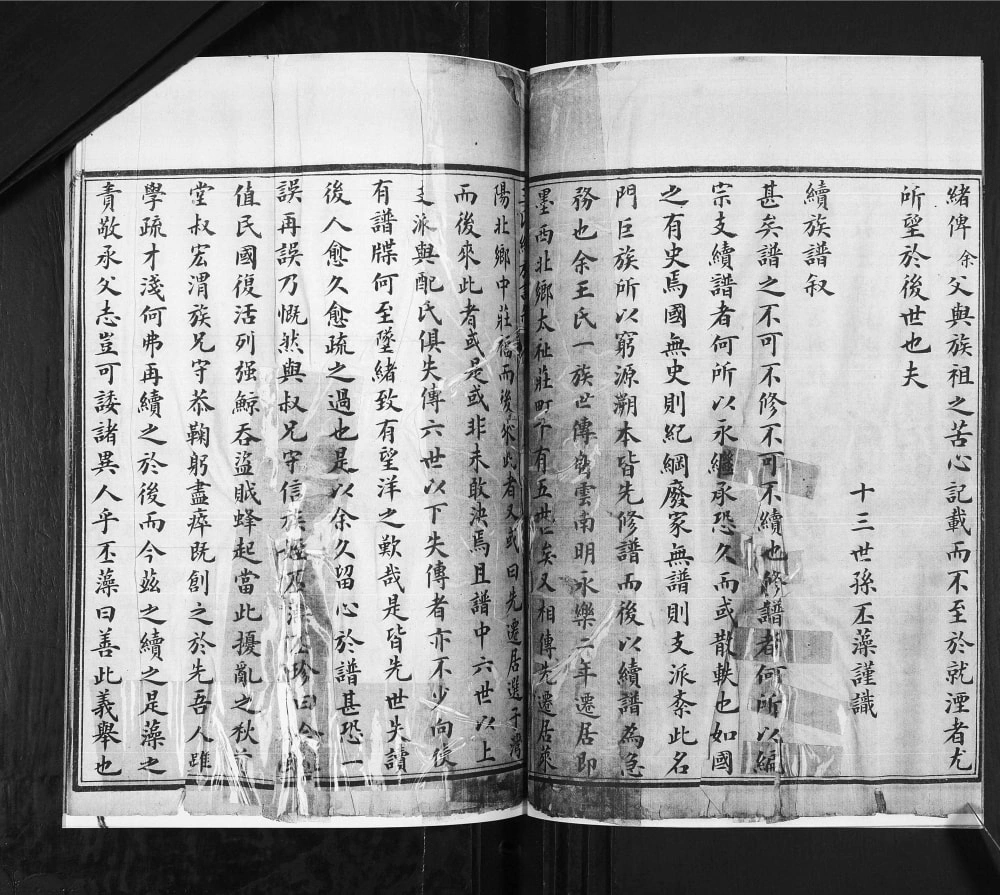 緒俾余父與族祖之苦心記載而不至於就湮者尤
所望於後世也夫
十三世孫丕藻謹識
續族譜叙
甚矣譜之不可不修不可不續也修譜者何所以編
宗支續譜者何所以永繼承恐久而或散軼也如國
之有史焉國無史則紀綱廢家無譜則支派紊此名
門巨族所以窮源朔本皆先修譜而後以續譜為急
務也余王氏一族世傳雲南明永樂二年遷居即
墨西北鄉太祉莊町下有五世矣又相傳先遷居萊
陽北鄉中莊而後來此者又或曰先遷居選子灣
而後來此者或是或非未敢決焉且譜中六世以上
支派與配氏俱失傳六世以下失傳者亦不少向使
有譜牒何至墜緒致有望洋之歎哉是皆先世失讀
後人愈久愈疏之過也是以余久留心於譜甚恐一
誤再誤乃慨然與叔兄守信族曰今
值民國復活列强鯨吞盜賊蜂起當此擾亂之秋
堂叔宏渭族兄守恭鞠躬盡瘁既創之於先吾人雖
學疏才淺何弗再續之於後而今茲之續之是藻之
責敬承父志豈可諉諸異人乎丕藻曰善此義舉也